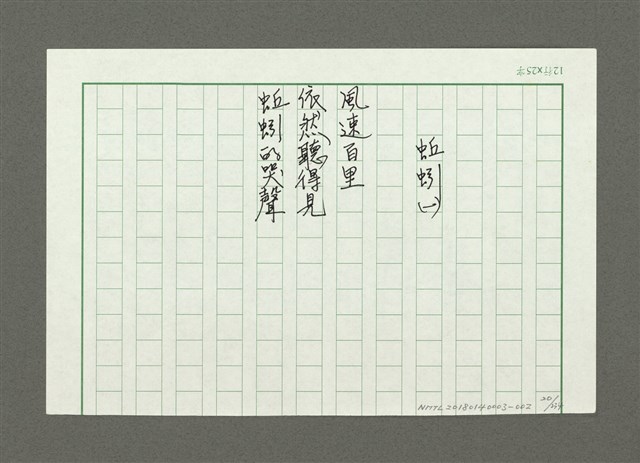 12行×25字
蚯蚓(一)
風速百里
依然聽得見
蚯蚓的哭聲
NMTL20180140003-002